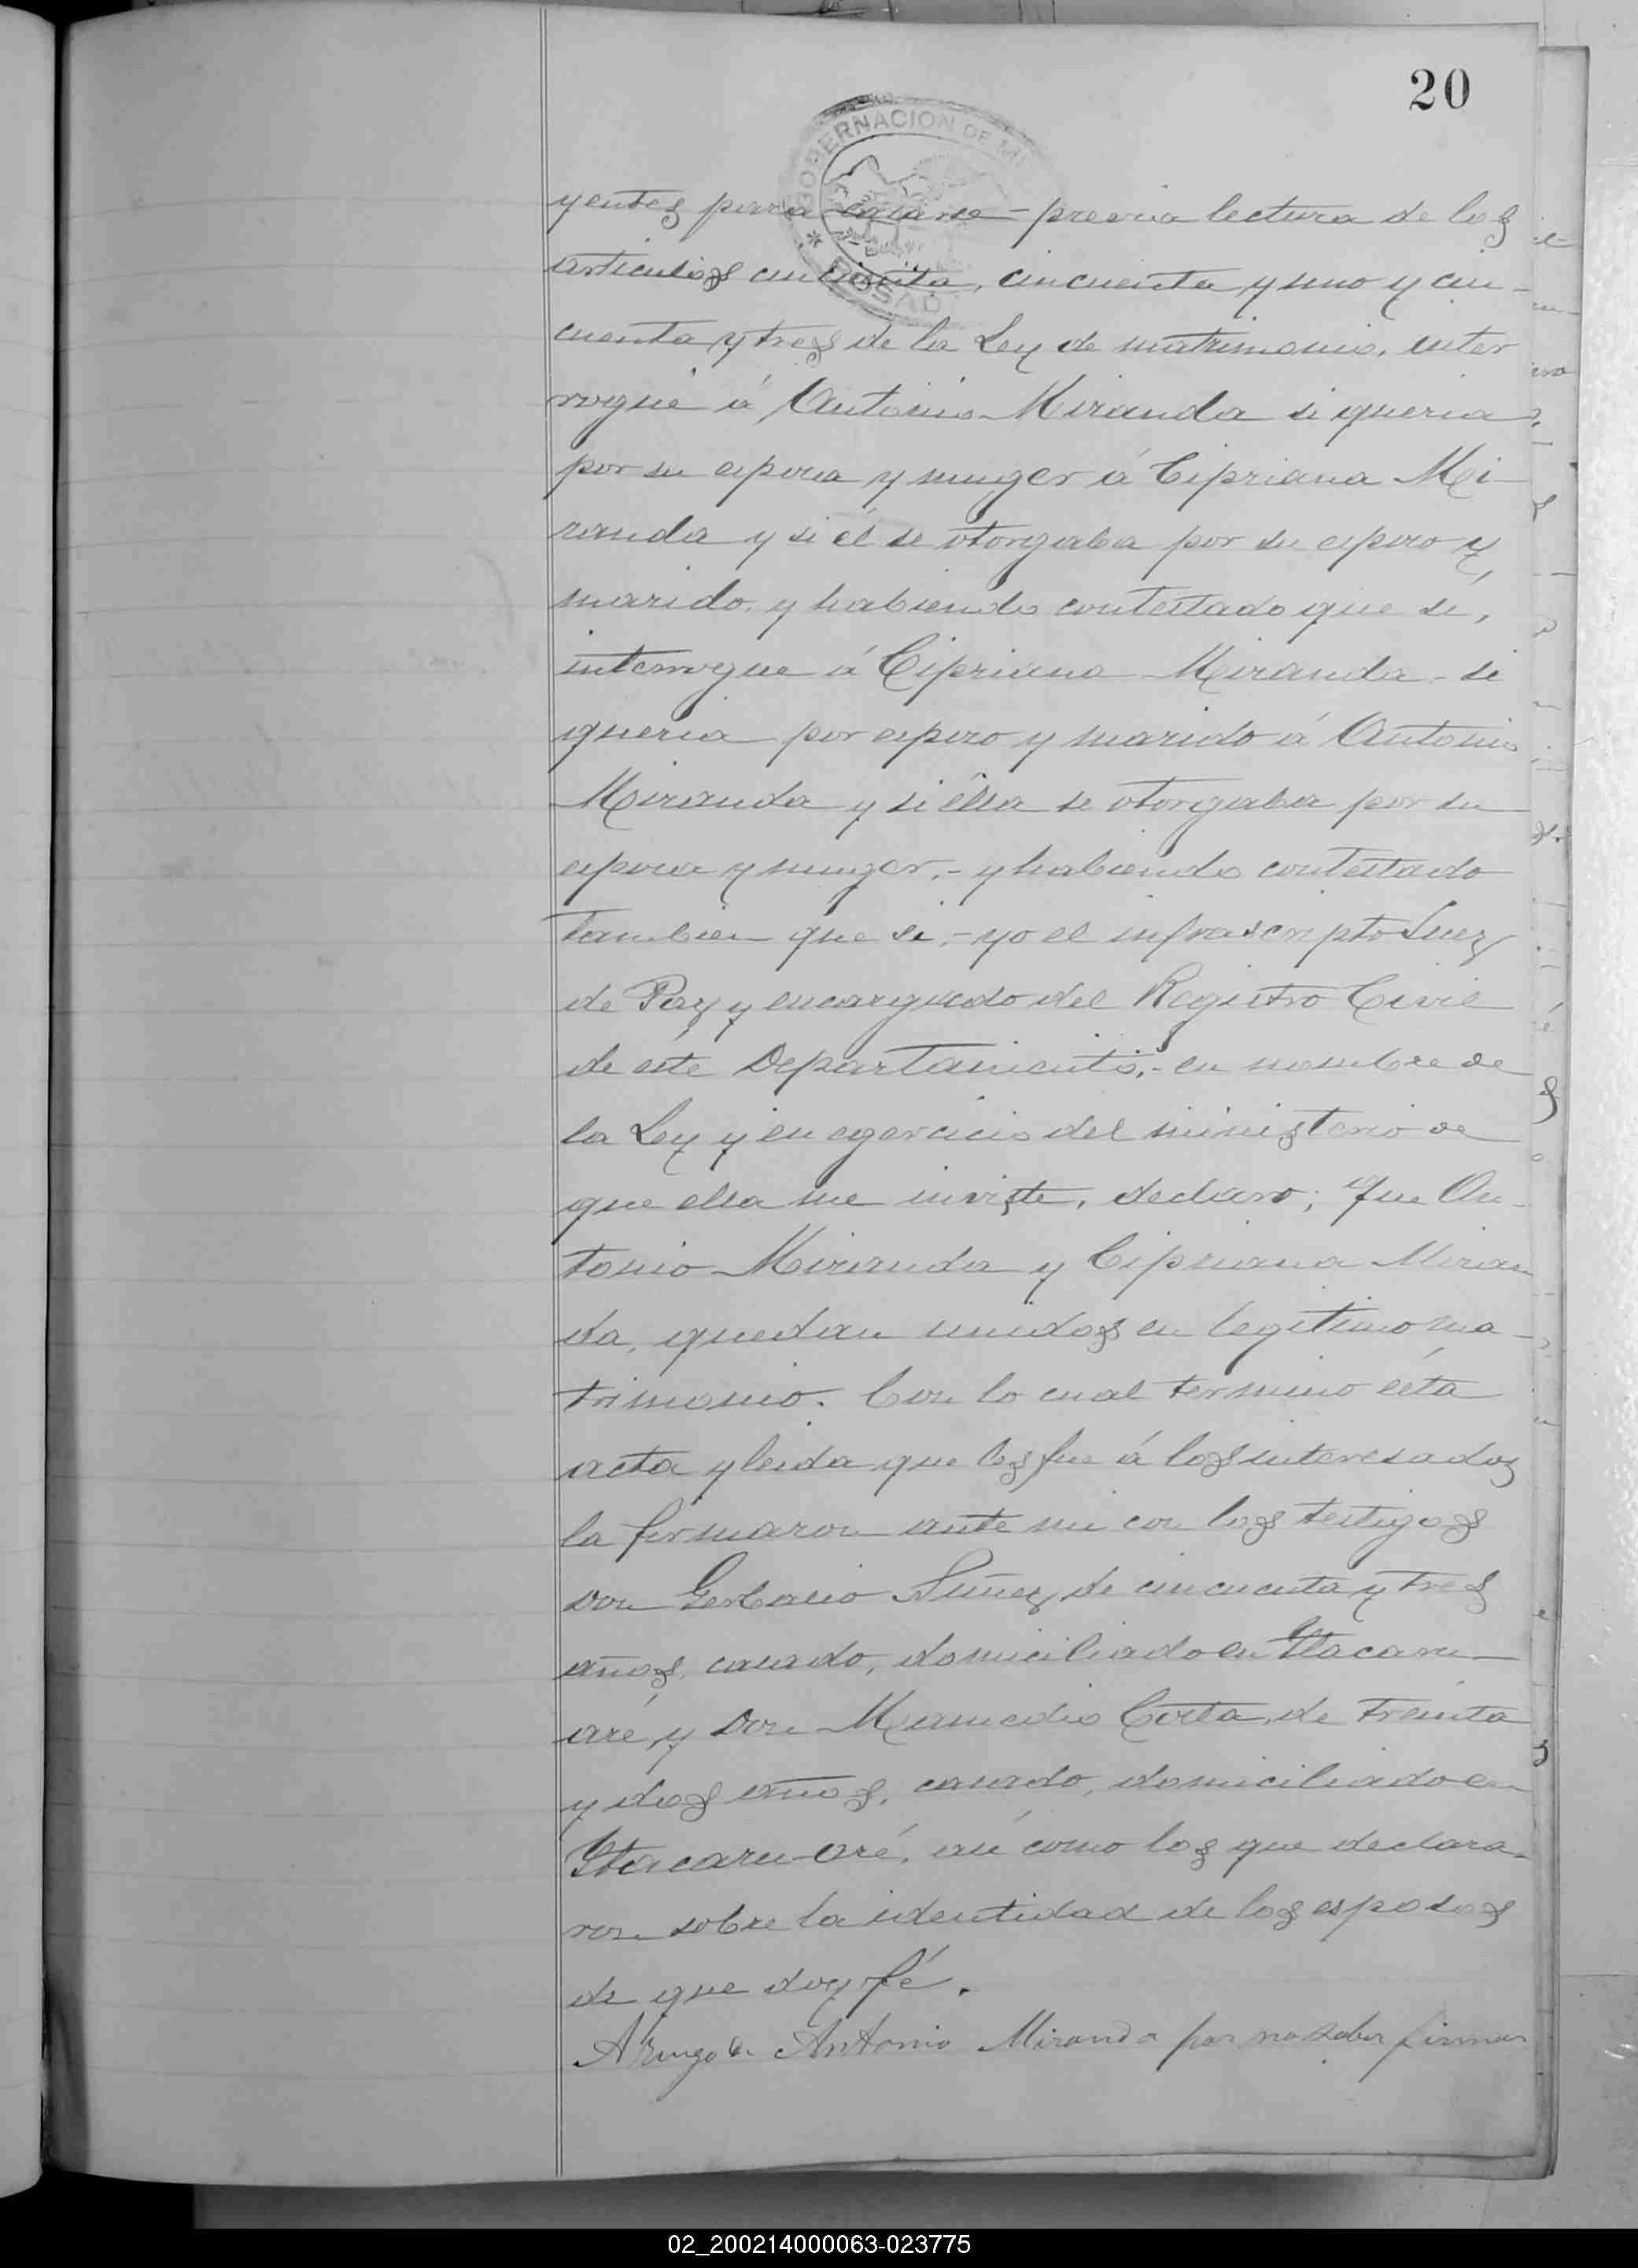 20
GOBERNACION DE MI
* POSAD
yentes para casarse – previa lectura de los
articulos cincuenta, cincuenta y uno y cin-
cuenta y tres de la Ley de matrimonio, inter
rogué á Antonio Miranda si queria
por su esposa y muger á Cipriana Mi-
randa y si él se otorgaba por su esposo y
marido, y habiendo contestado que sí,
interrogue á Cipriana Miranda – si
queria por esposo y marido á Antonio
Miranda y si élla se otorgaba por su
esposa y muger, – y habiendo contestado
tambien que si, – yo el infrascripto Juez
de Paz y encargado del Registro Civil
de éste Departamento, – en nombre de
la Ley y en egercicio del ministerio de
que ella me inviste, declaro; que An-
tonio Miranda y Cipriana Miran
da, quedan unidos en legitimo ma-
trimonio. Con lo cual termino ésta
acta y leida que les fue á los interesados
la firmaron ante mi con los testigos
Don Gerbacio Nuñez de cincuenta y tres
años, casado, domiciliado en Itacaru-
aré y Don Mamedio Costa, de treinta
y dos años, casado, domiciliado en
Itacaru-aré, asi como los que declara-
ron sobre la identidad de los esposos
de que doy fé.
A Ruego de Antonio Miranda por no saber firmar
02_200214000063-023775